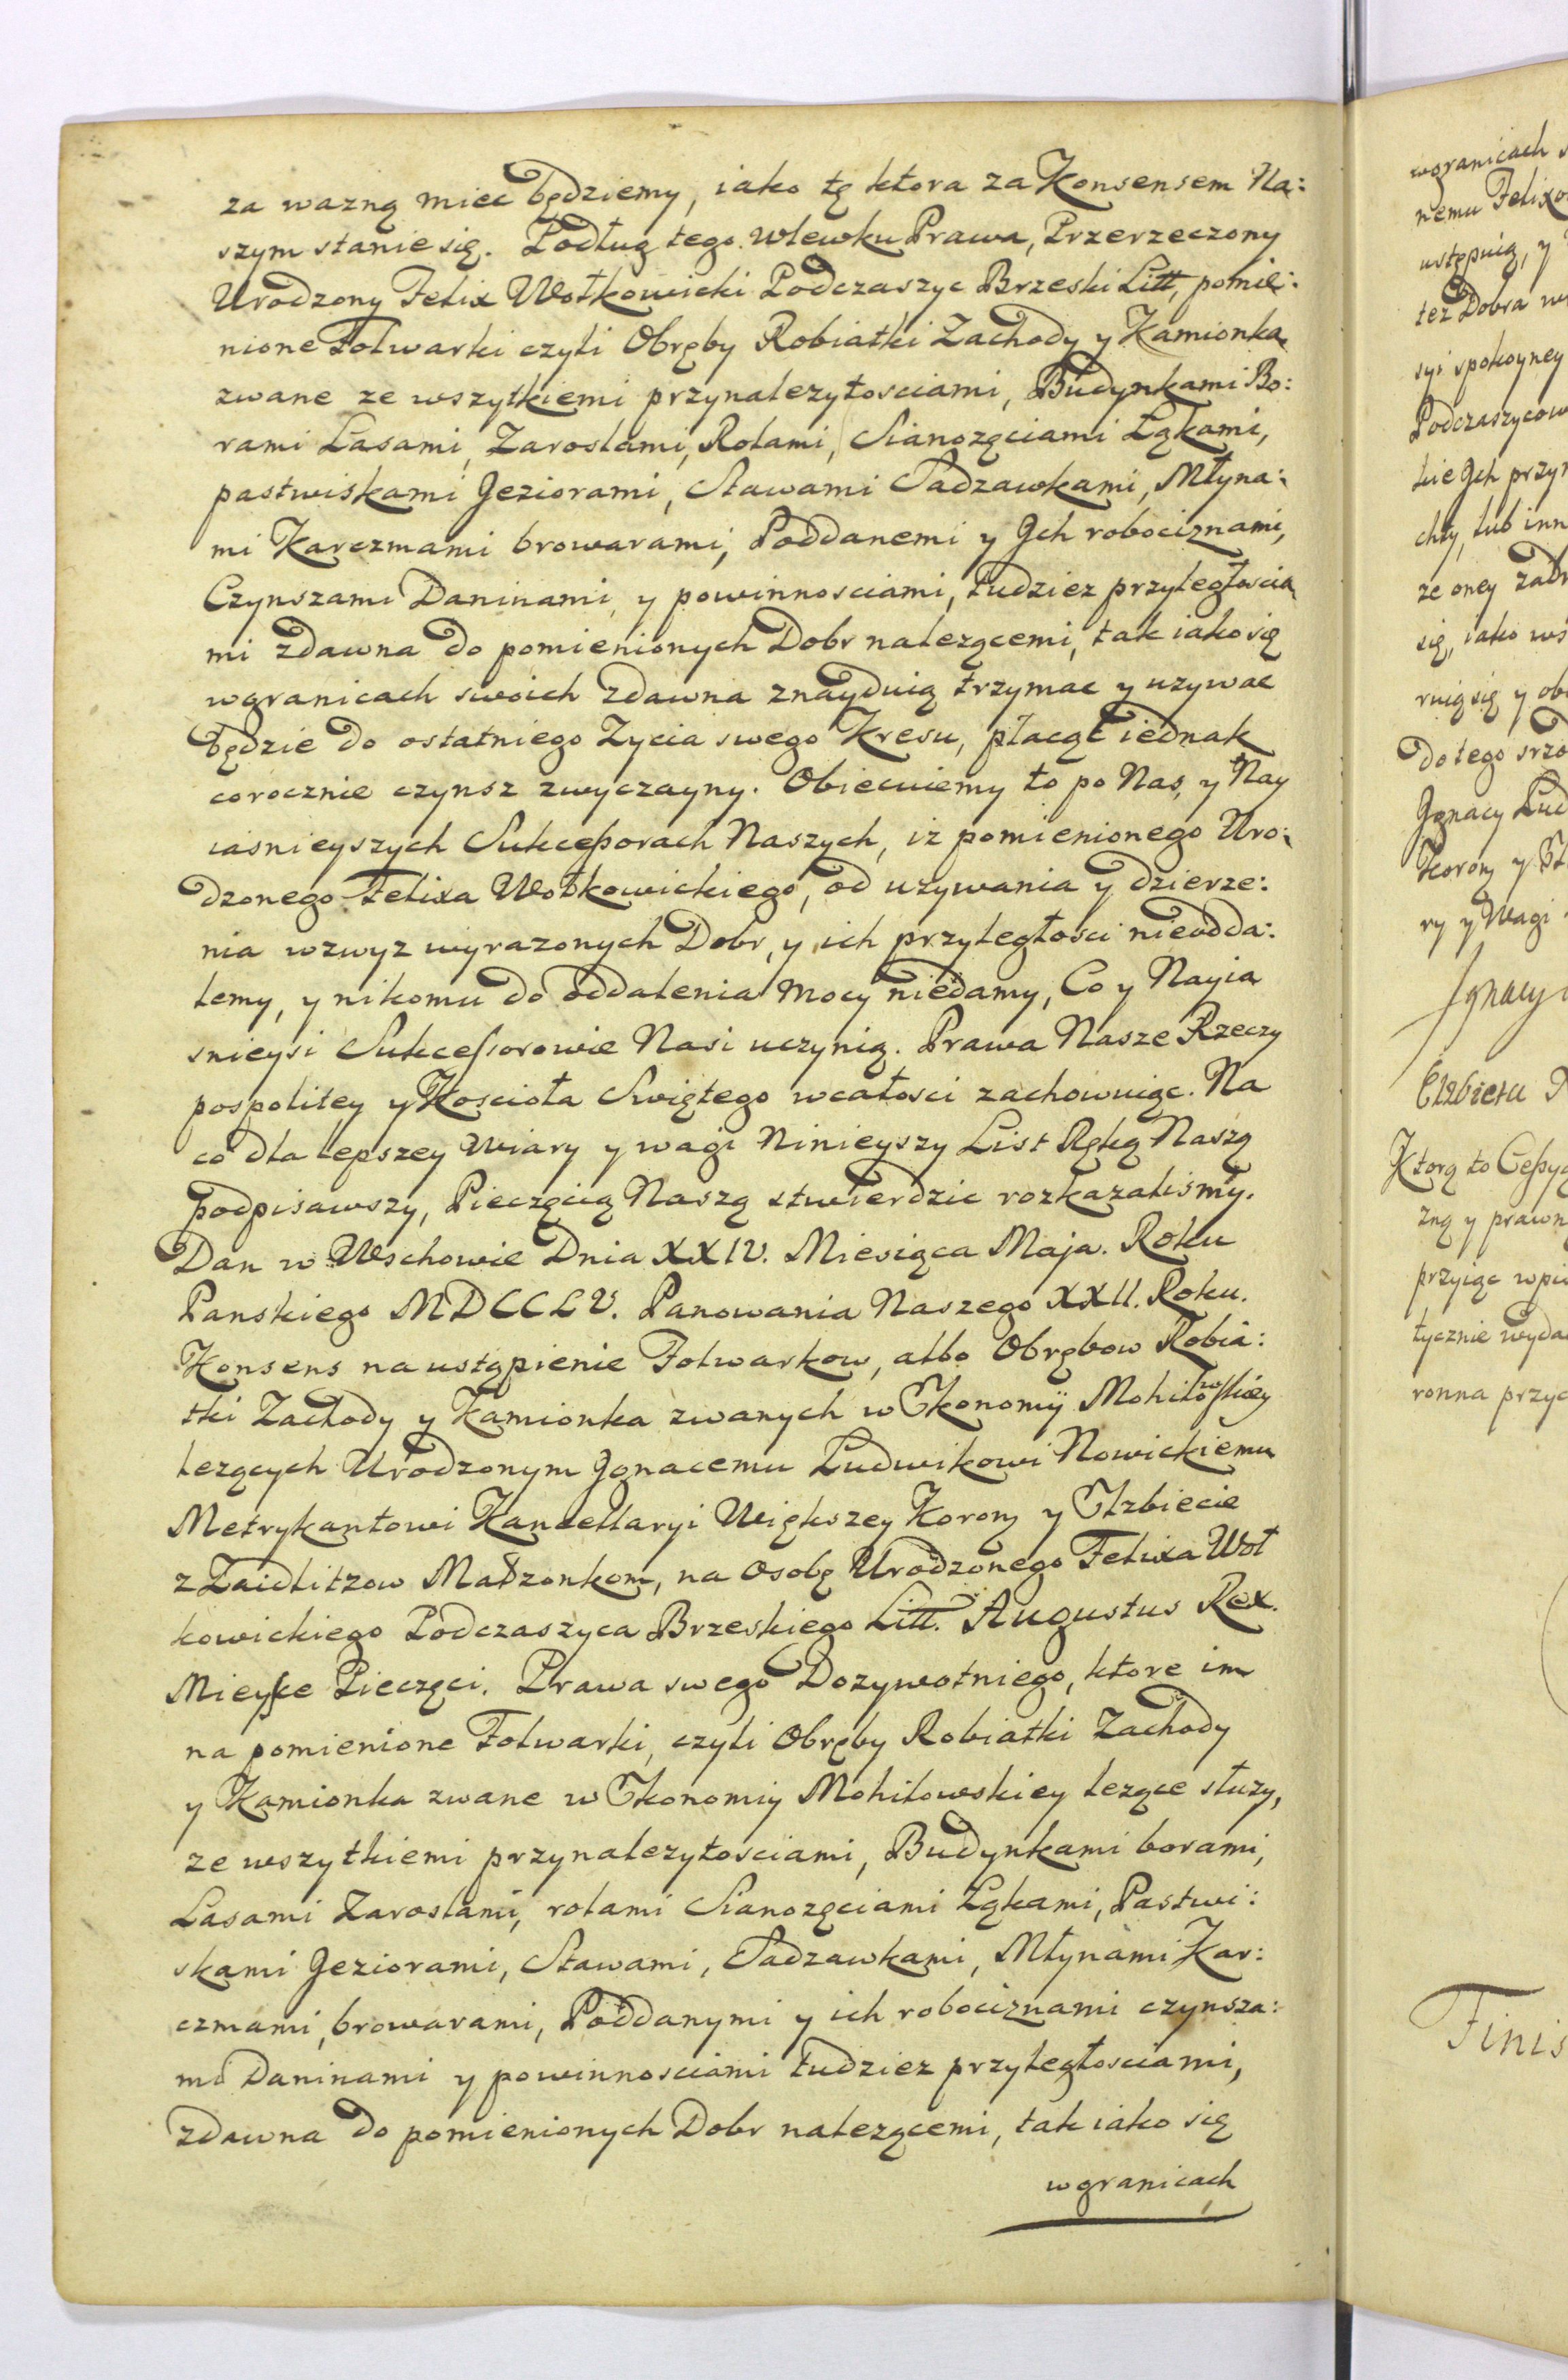 za wazną miec będziemy, iako tę ktora za Konsensem Na:
szym stanie się. Podług tego wlewku Prawa, Przerzeczony
Urodzony Felix Wołkowicki Podczaszyc Brzeski Litt, pomie:
nione Folwarki czyli Obręby Robiatki Zachody y Kamionka
zwane ze wszytkiemi przynalezytosciami, Budynkami Bo:
rami Lasami, Zaroslami, Rolami, Sianozęciami Łąkami,
pastwiskami Jeziorami, Stawami Sadzawkami, Młyna:
mi Karczmami browarami, Poddanemi y Jch robociznami,
Czynszami Daninami, y powinnosciami, tudziez przyległoscia
mi zdawna do pomienionych Dobr nalezącemi, tak iako się
wgranicach swoich zdawna znayduią trzymac y uzywac
będzie do ostatniego Zycia swego Kresu, płacąc iednak
corocznie czynsz zwyczayny. Obiecuiemy to po Nas, y Nay
iasnieyszych Sukceßorach Naszych, iz pomienionego Uro:
dzonego Felixa Wołkowickiego, od uzywania y dzierze:
nia wzwyz wyrazonych Dobr, y ich przyległosci nieodda:
lemy, y nikomu do oddalenia mocy niedamy, Co y Nayia
snieysi Sukceßorowie Nasi uczynią. Prawa Nasze Rzeczy
pospolitey y Kosciola Swiętego wcałosci zachowuiąc. Na
co dla lepszey Wiary y wagi Ninieyszy List Ręką Naszą
podpisawszy, Pieczęcią Naszą stwierdzic rozkazalismy.
Dan w Wschowie Dnia XXIV. Miesiąca Maja. Roku
Panskiego MDCCLV. Panowania Naszego XXII. Roku.
Konsens na ustąpienie Folwarkow, albo Obrębow Robia:
tki Zachody y Kamionka zwanych w Ekonomij Mohilowskiey
lezących Urodzonym Jgnacemu Ludwikowi Nowickiemu
Metrykantowi Kancellaryi Większey Korony y Elzbiecie
z Zaidlitzow Małzonkom, na Osobę Urodzonego Felixa Woł
kowickiego Podczaszyca Brzeskiego Litt. Augustus Rex.
Mieysce Pieczęci. Prawa swego Dozywotniego, ktore im
na pomienione Folwarki, czyli Obręby Robiatki Zachody
y Kamionka zwane w Ekonomiy Mohilowskiey lezące słuzy,
ze wszytkiemi przynalezytosciami, Budynkami borami,
Lasami Zaroslami, rolami Sianozęciami Łąkami, Pastwi:
skami Jeziorami, Stawami, Sadzawkami, Młynami Kar:
czmami, browarami, Poddanymi y ich robociznami czynsza:
mi Daninami y powinnosciami tudziez przyległosciami,
zdawna do pomienionych Dobr nalezącemi, tak iako się
wgranicach
wgranicach
nemu Felixo
ustępuią, y
tez Dobra w
syi spokoyney
Podczaszycow
kie Jch przyn
chty, lub inn
ze oney zad
się, iako ws
ruią się y ob
Do tego srzo
Jgnacy Lud
Korony y El
ry y Wagi
Ignacy
Elzbieta
Ktorą to Ceßyą
zną y prawn
przyiąc wpi
tycznie wyda
ronna przyc
Finis